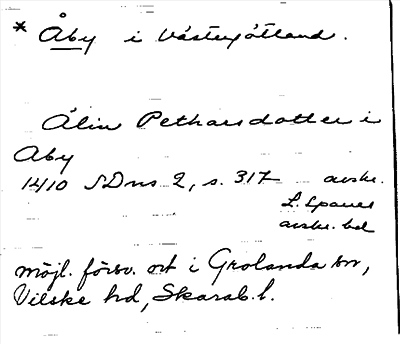 * Åby i Västergötland.
Ålin Petharsdotter i
Aby
1410 SDns 2, s. 317 avskr.
L. Spauer
avskr. bd
möjl. försv. ort i Grolanda sn,
Vilske hd, Skarab. l.